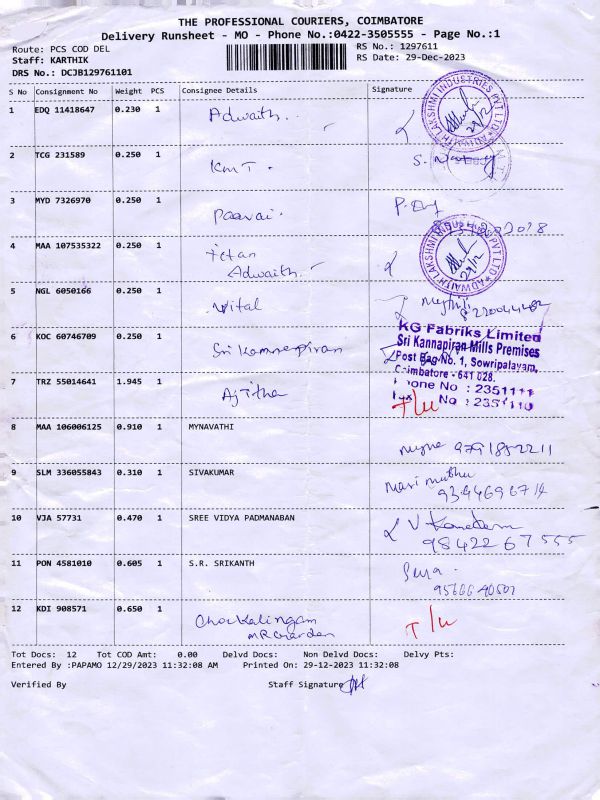 THE PROFESSIONAL COURIERS, COIMBATORE
Delivery Runsheet - MO - Phone No.:0422-3505555 - Page No.:1
Route: PCS COD DEL
RS No.: 1297611
Staff: KARTHIK
RS Date: 29-Dec-2023
DRS No.: DCJB129761101
S No Consignment No Weight PCS Consignee Details Signature
1 EDQ 11418647 0.230 1 Adwaith
ADWAITH LAKSHMI INDUSTRIES PVT LTD
29/12
2 TCG 231589 0.250 1 KMT.
3 MYD 7326970 0.250 1 Paavai.
4 MAA 107535322 0.250 1 Titan
Adwaith
ADWAITH LAKSHMI INDUSTRIES PVT LTD
29/12
5 NGL 6050166 0.250 1 Vital
6 KOC 60746709 0.250 1 Sri Kannapiran
KG Fabriks Limited
Sri Kannapiran Mills Premises
Post Bag No. 1, Sowripalayam,
Coimbatore - 641 028.
Phone No : 2351111
No : 2351110
7 TRZ 55014641 1.945 1 Ajitha
T/U
8 MAA 106006125 0.910 1 MYNAVATHI
9 SLM 336055843 0.310 1 SIVAKUMAR
Mari muthu
10 VJA 57731 0.470 1 SREE VIDYA PADMANABAN
98422 67555
11 PON 4581010 0.605 1 S.R. SRIKANTH
12 KDI 908571 0.650 1 Chockalingam
T/U
Tot Docs: 12 Tot COD Amt: 0.00 Delvd Docs: Non Delvd Docs: Delvy Pts:
Entered By :PAPAMO 12/29/2023 11:32:08 AM Printed On: 29-12-2023 11:32:08
Verified By Staff Signature